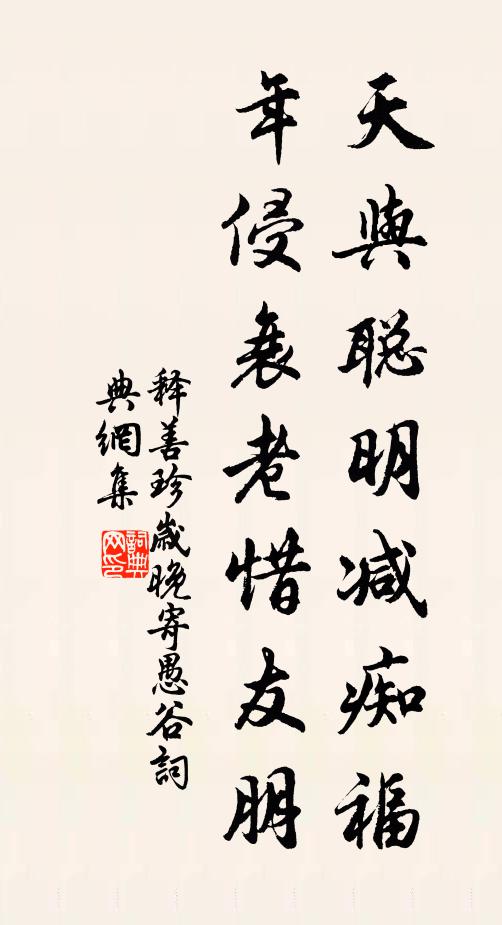 天與聪明减痴福
年侵衰老惜友朋
释善珍歲晚寄愚谷詞
典網集
詞典网印